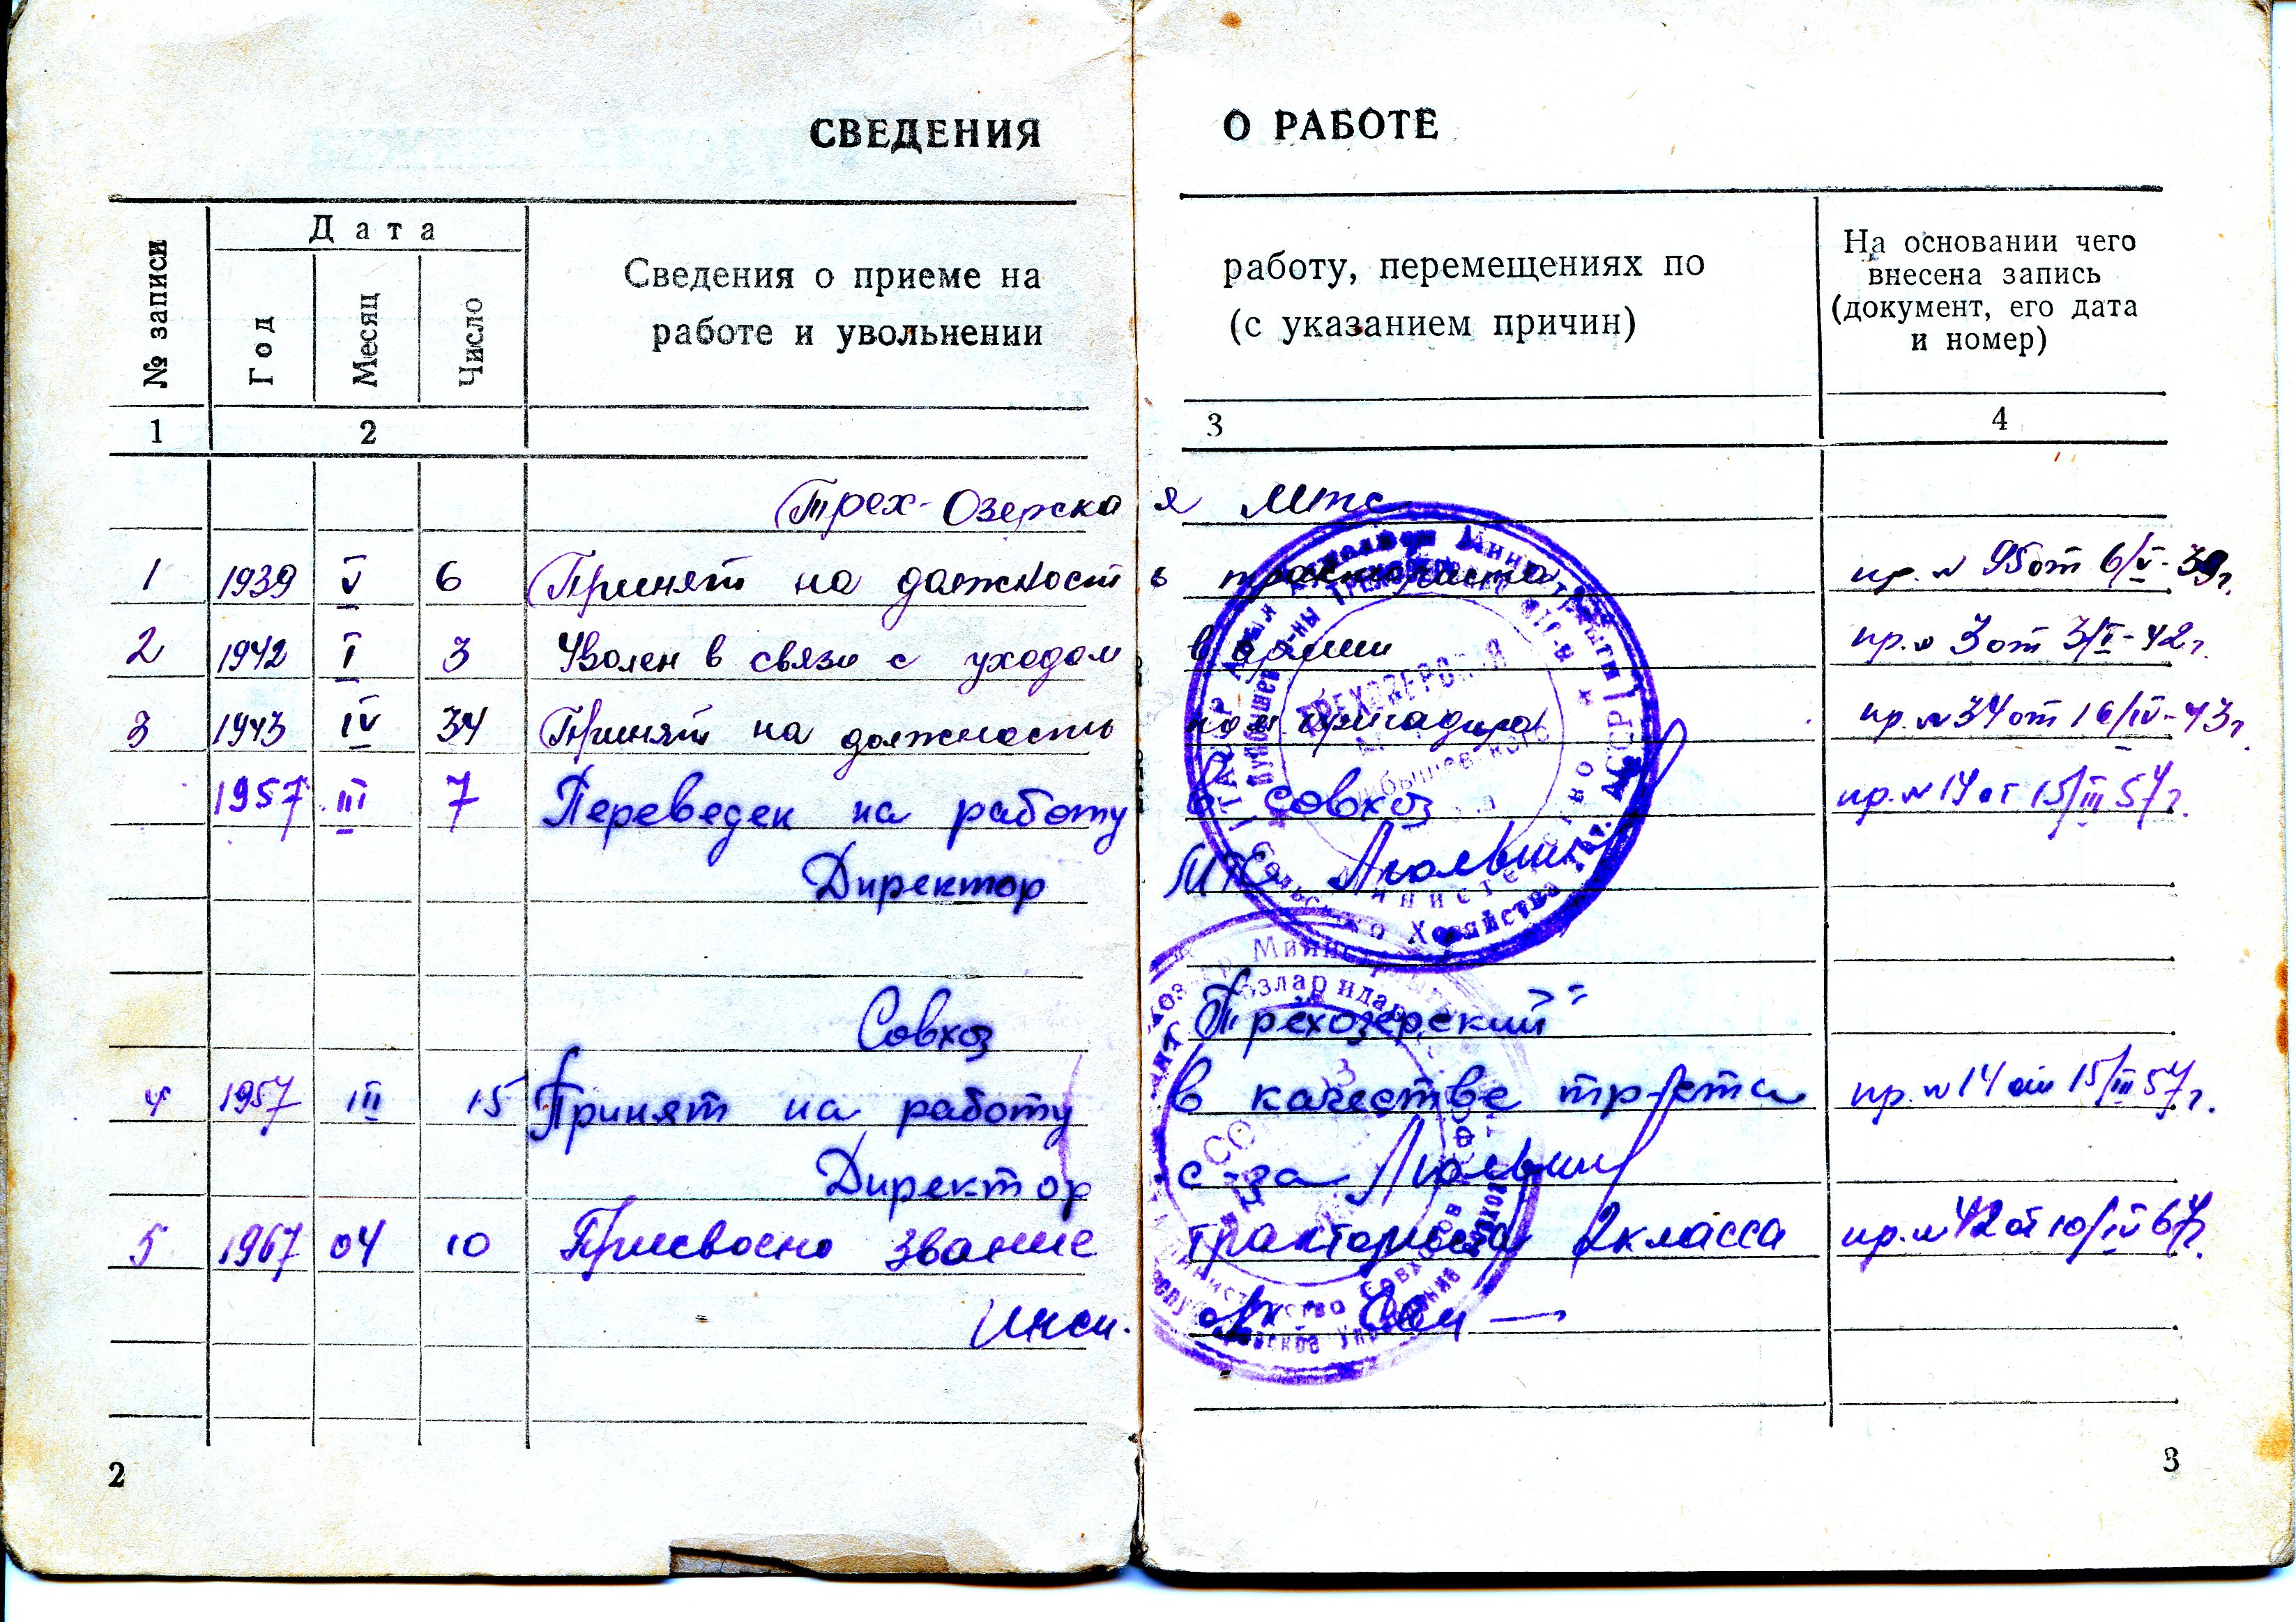 СВЕДЕНИЯ О РАБОТЕ
№ записи
Дата
Год
Месяц
Число
Сведения о приеме на работу, перемещениях по
работе и увольнении (с указанием причин)
На основании чего
внесена запись
(документ, его дата
и номер)
1 2 3 4
Трех-Озерская МТС
1 1939 V 6 Принят на должность тракториста пр. № 95 от 6/V-39г.
2 1942 I 3 Уволен в связи с уходом в армии пр. № 3 от 3/I-42г.
3 1943 IV 34 Принят на должность пом бригадира пр. № 34 от 16/IV-43г.
1957 III 7 Переведен на работу в совхоз пр. № 14 от 15/III 57г.
Директор МТС
Совхоз Трёхозерский"
4 1957 III 15 Принят на работу в качестве тр-ста пр. № 14 от 15/III 57г.
Директор с-за
5 1967 04 10 Присвоено звание тракториста 2 класса пр. № 42 от 10/IV 67г.
Инсп.
2
3